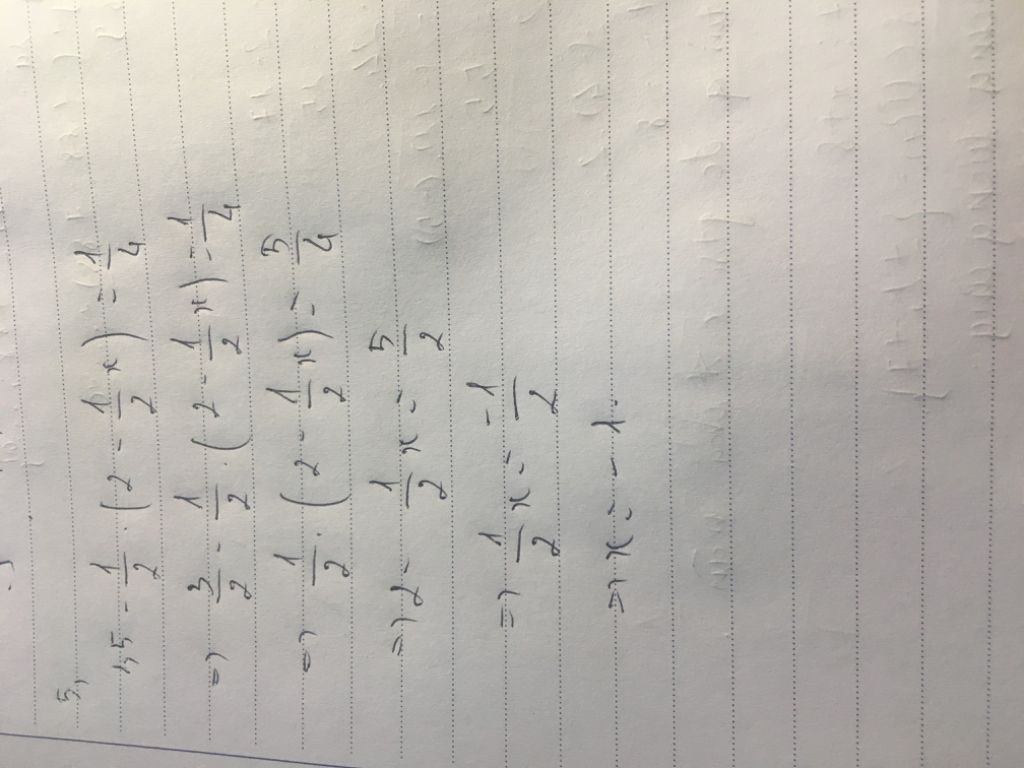 5,
1,5 - 1/2 . (2 - 1/2 x) = 1/4
=> 3/2 - 1/2 . (2 - 1/2 x) = 1/4
=> 1/2 . (2 - 1/2 x) = 5/4
=> 2 - 1/2 x = 5/2
=> 1/2 x = -1/2
=> x = -1.